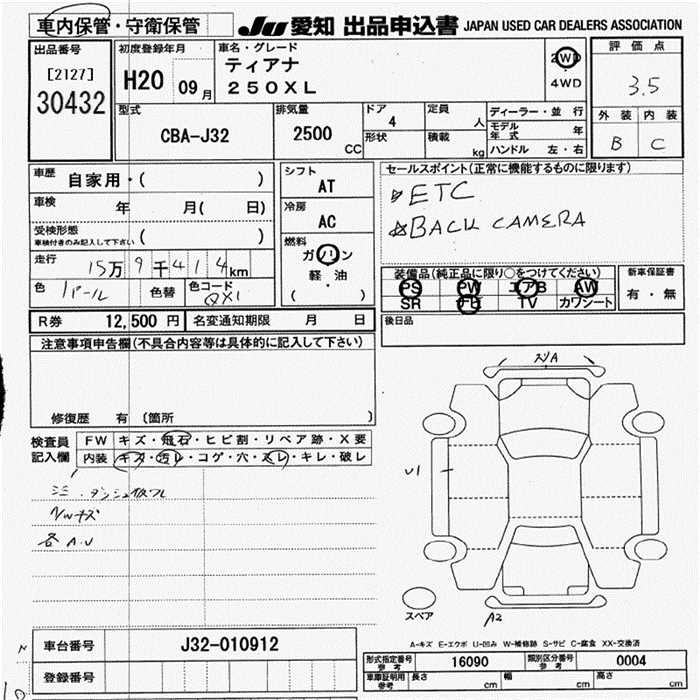 車内保管・守衛保管 JU 愛知 出品申込書 JAPAN USED CAR DEALERS ASSOCIATION
出品番号
[2127]
30432
初度登録年月
H20 09月
車名・グレード
ティアナ
250XL
2WD
4WD
評価点
3.5
外装 内装
B C
型式
CBA-J32
排気量
2500 CC
ドア
4
定員
人
形状
積載
kg
ディーラー・並行
モデル年式 年
ハンドル 左・右
車歴 自家用・( )
車検 年 月( 日)
受検形態
車検付きのみ記入して下さい ( )
走行 15万9千414km
色 パール 色替 色コード QX1
シフト
AT
冷房
AC
燃料
ガソリン
軽・油
( )
セールスポイント(正常に機能するものに限ります)
ETC
☆BACK CAMERA
装備品(純正品に限り○をつけてください)
PS PW エアB AW
SR TV カワシート
新車保証書
有・無
R券 12,500 円 名変通知期限 月 日
後日品
注意事項申告欄(不具合内容等は具体的に記入して下さい)
修復歴 有 〔箇所 〕
検査員
記入欄
FW キズ・飛石・ヒビ割・リペア跡・X要
内装 キズ・汚レ・コゲ・穴・スレ・キレ・破レ
各A.U
U1
A2
スペア
A-キズ E-エクボ U-凹み W-補修跡 S-サビ C-腐食 XX-交換済
車台番号 J32-010912
登録番号
形式指定番号
参考
16090
類別区分番号
参考
0004
車庫証明用
参考
長さ cm
幅 cm
高さ cm